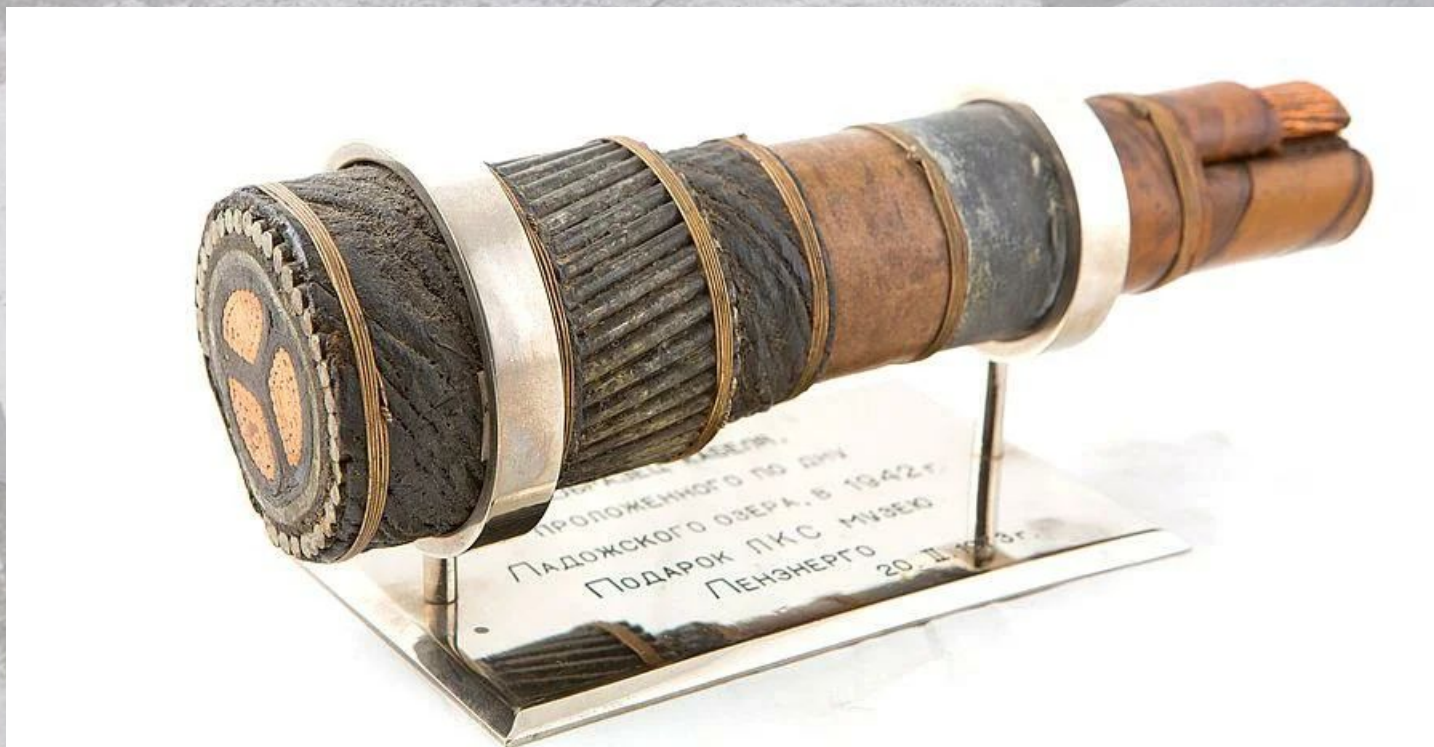 ОБРАЗЕЦ КАБЕЛЯ,
ПРОЛОЖЕННОГО ПО ДНУ
ЛАДОЖСКОГО ОЗЕРА, В 1942 г.
ПОДАРОК ЛКС МУЗЕЮ
ЛЕНЭНЕРГО
20. II.